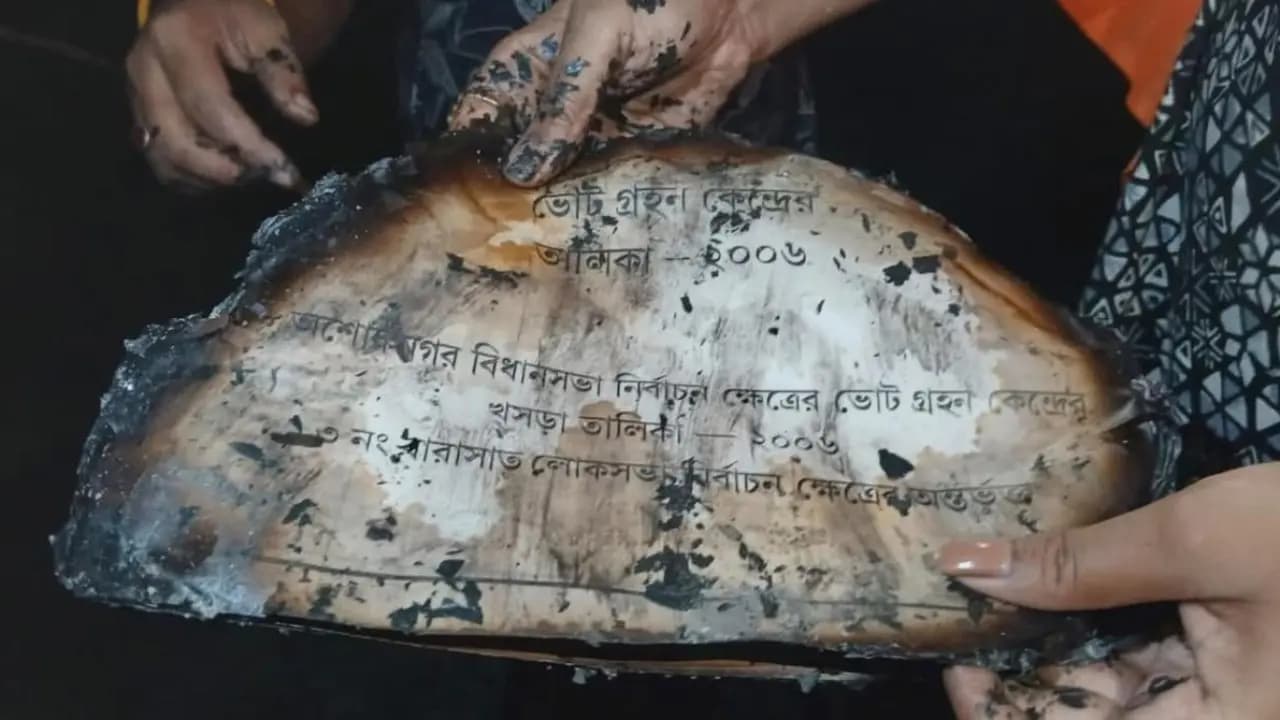 ভোট গ্রহন কেন্দ্রের
তালিকা – ২০০৬
অশোকনগর বিধানসভা নির্বাচন ক্ষেত্রের ভোট গ্রহন কেন্দ্রের
খসড়া তালিকা — ২০০৬
নং বারাসাত লোকসভা নির্বাচন ক্ষেত্রের অন্তর্ভূক্ত